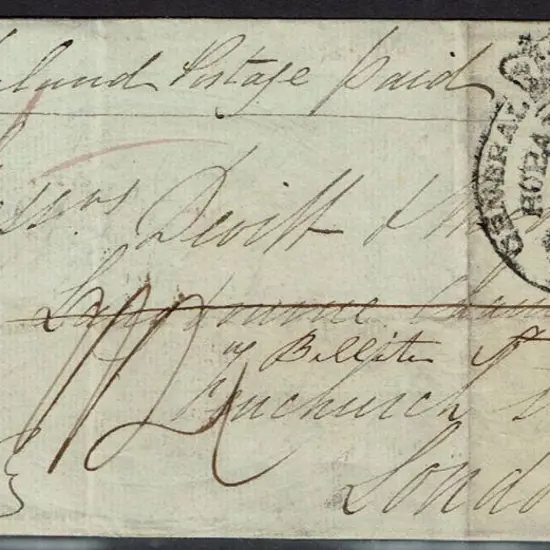 nland Postage paid
essrs Devitt & M
Lansdowne Cham
Billiter St
Fenchurch
London
GENERAL
HOBA